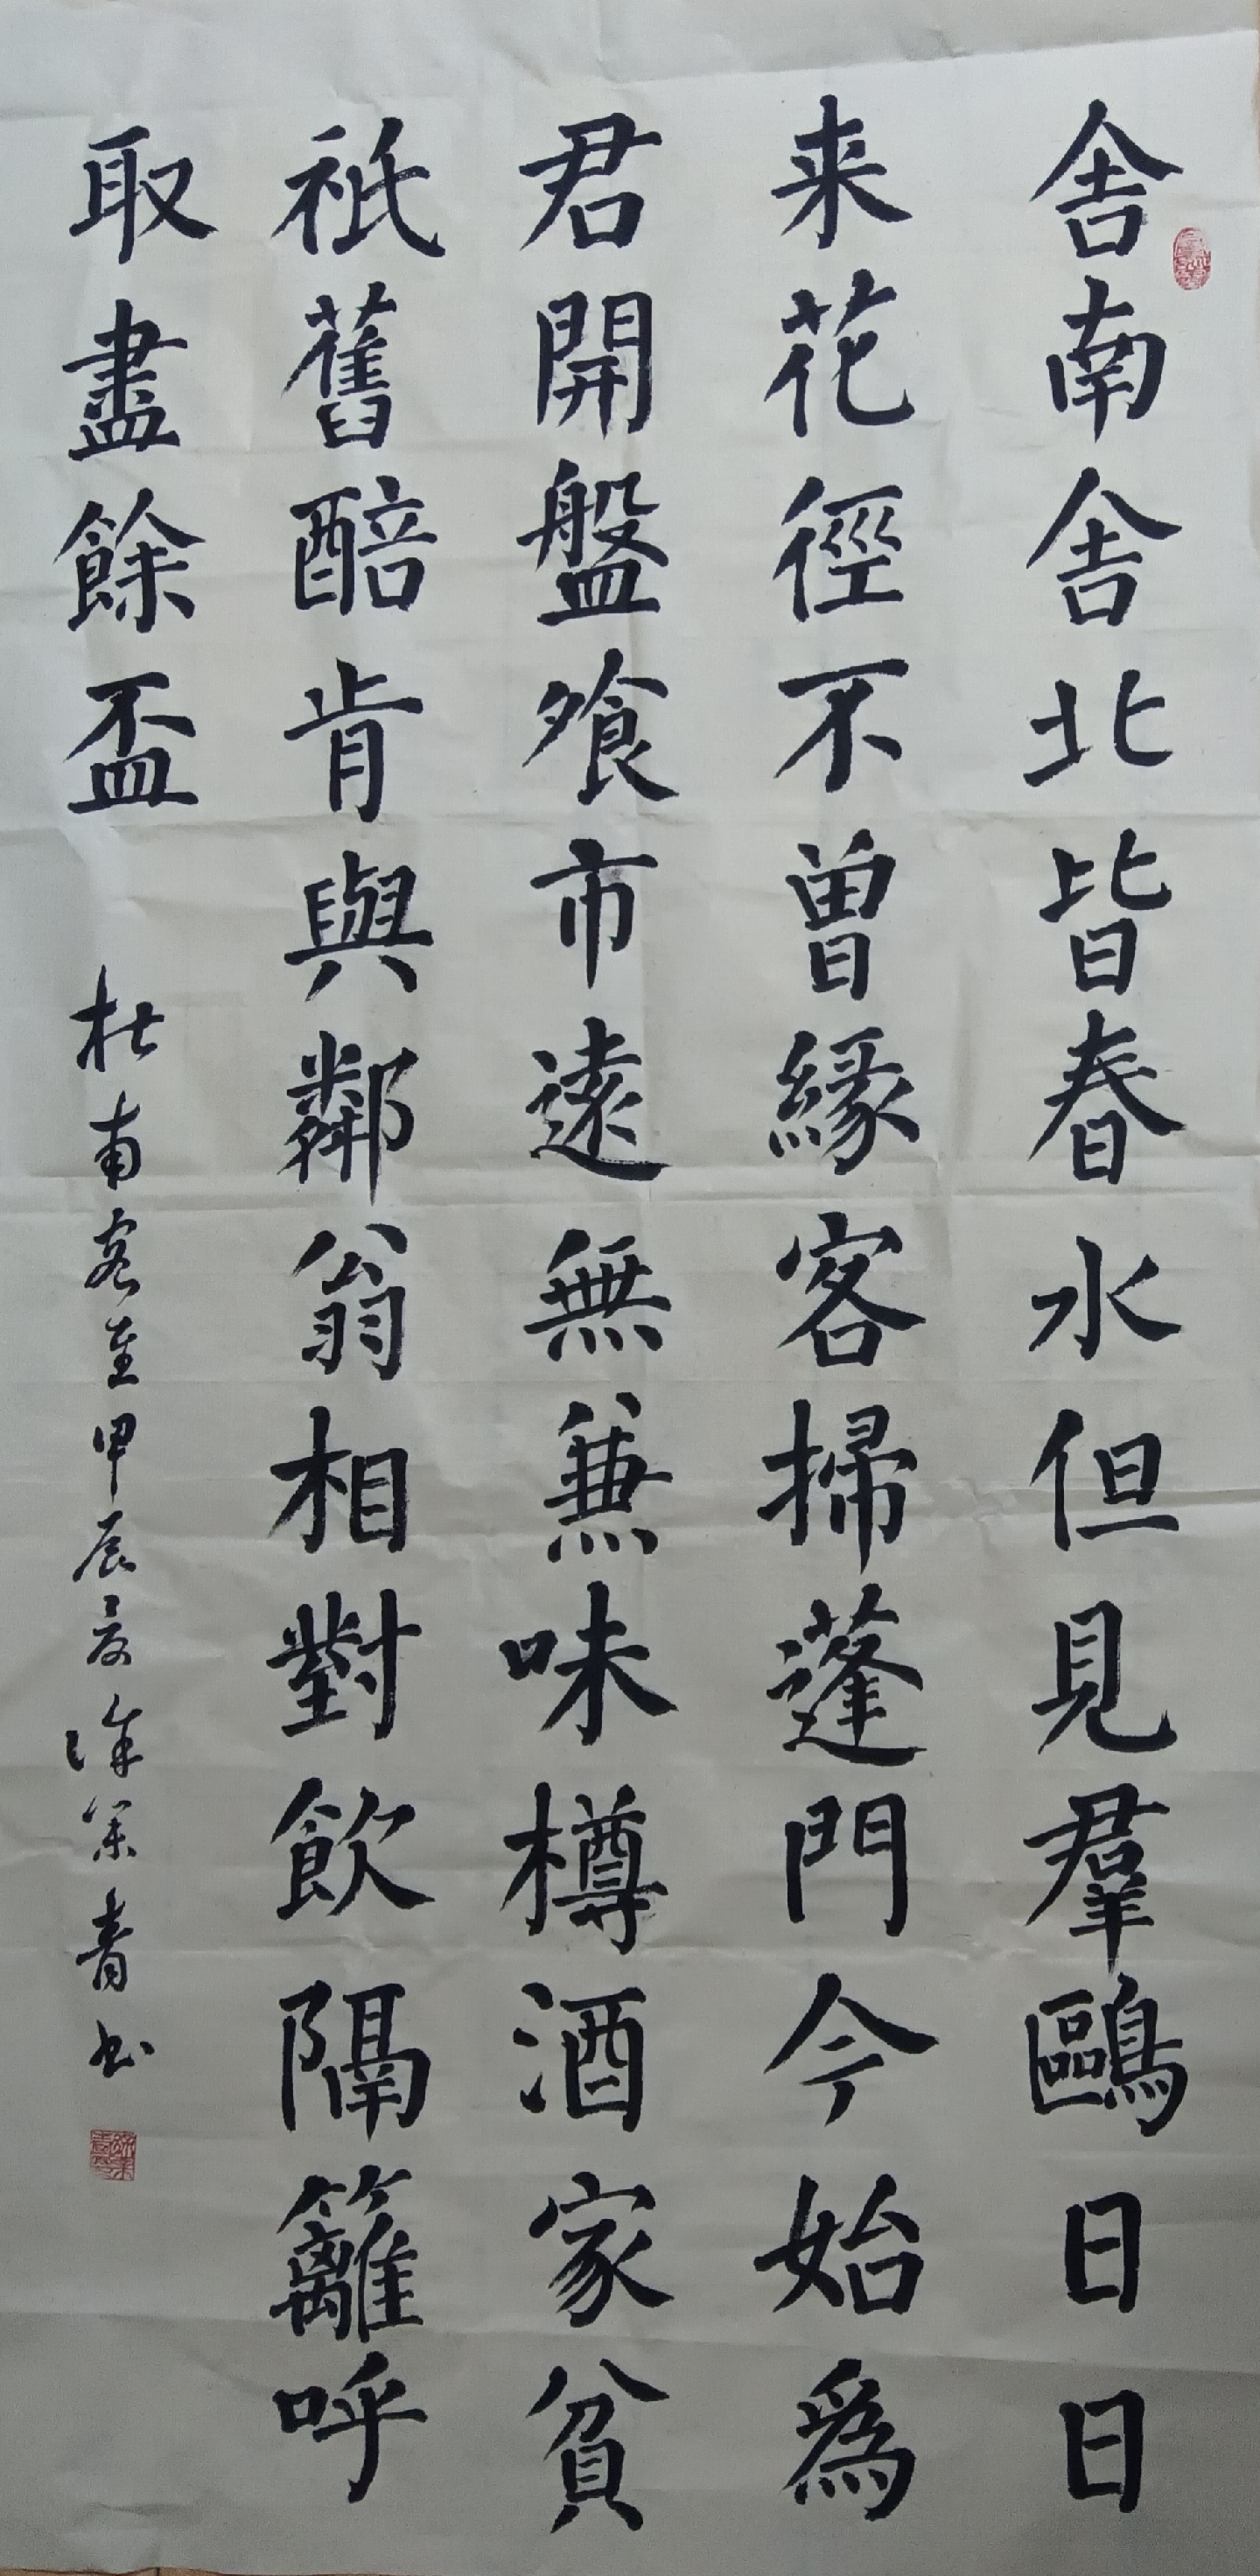 舍南舍北皆春水但見羣鷗日日
来花徑不曽緣客掃蓬門今始爲
君開盤飧市遠無兼味樽酒家貧
祇舊醅肯與鄰翁相對飲隔籬呼
取盡餘盃
杜甫客至甲辰夏徐業青书